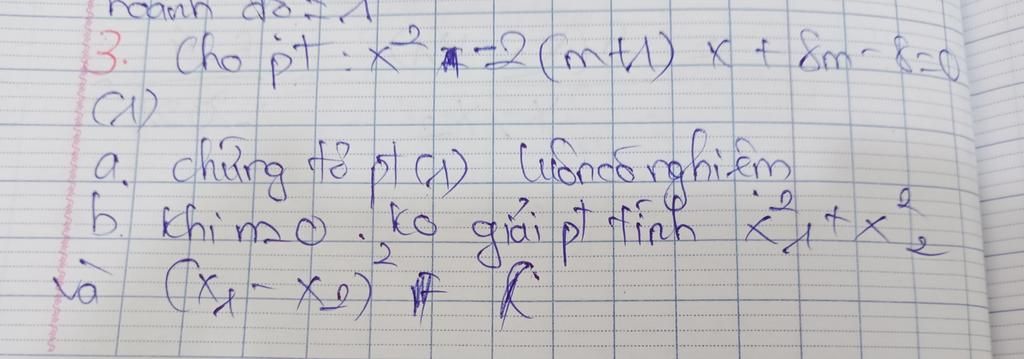 hoành độ = 1
3. Cho pt : x² - 2 (m+1) x + 8m - 8 = 0
(1)
a. chứng tỏ pt (1) luôn có nghiệm
b. khi m 0. ko giải pt tính x²₁ + x²₂
và (x₁ - x₂)²